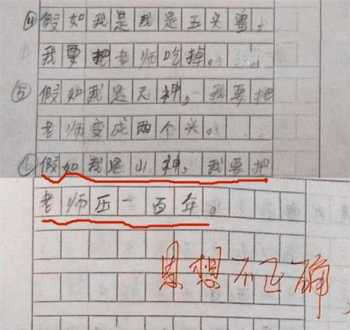 ④假如我是我是五头兽,
我要把老师吃掉。
⑤假如我是天神,我要把
老师变成两个头。
⑥假如我是山神,我要把
老师压一百年。
思想不正确